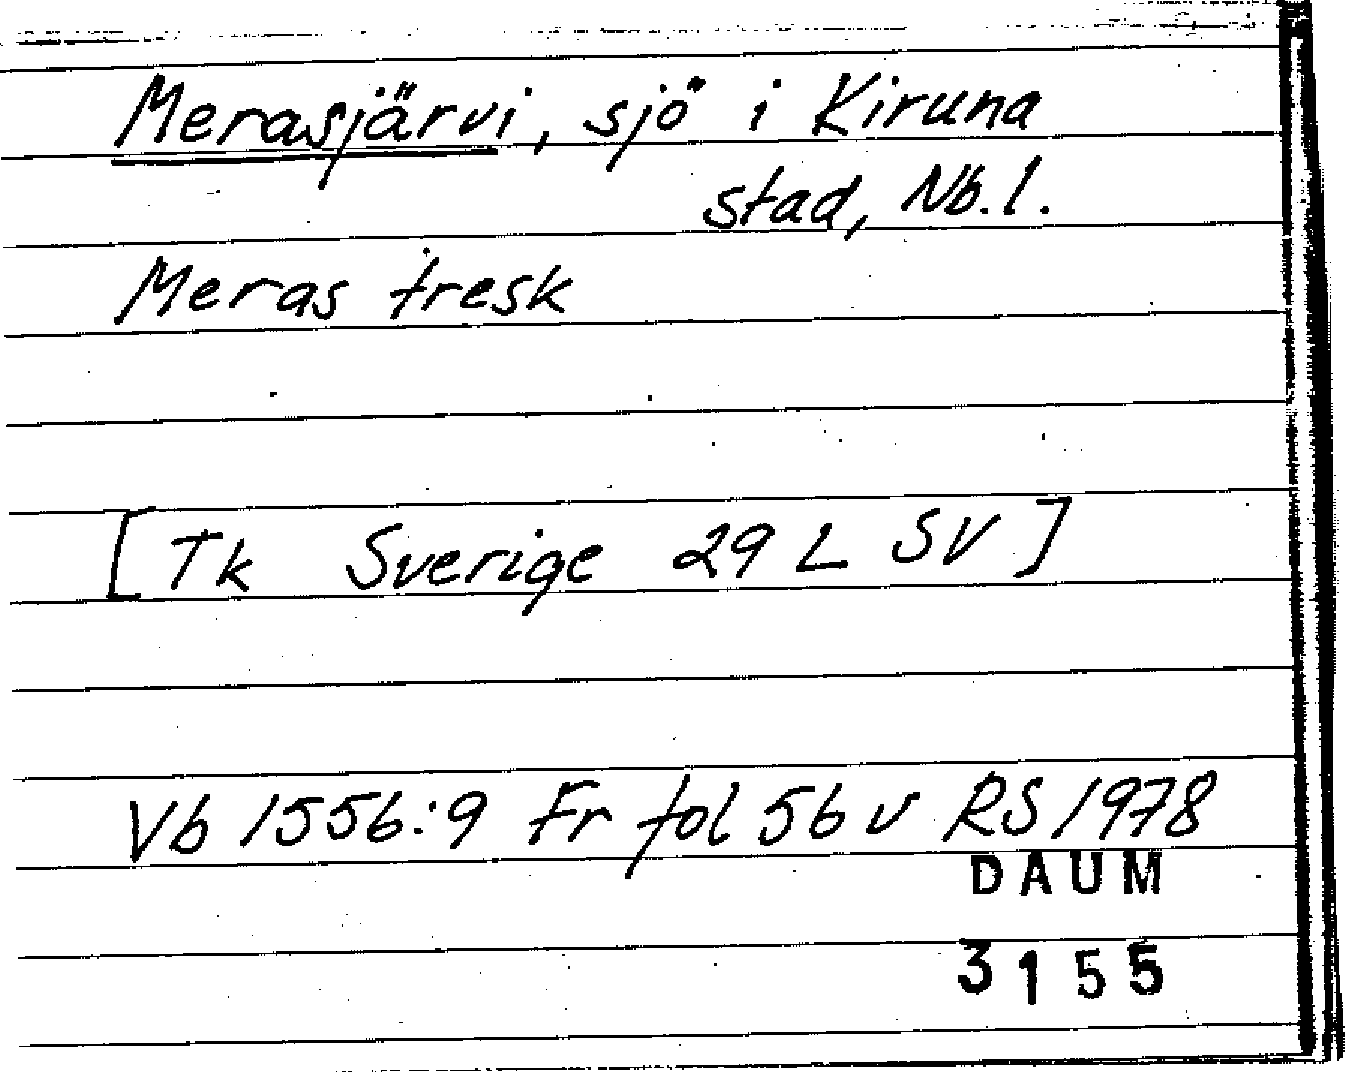 Merasjärvi, sjö i Kiruna
stad, Nb.l.
Meras tresk
[Tk Sverige 29 L SV]
Vb 1556:9 Fr fol 56 v RS 1978
DAUM
3155